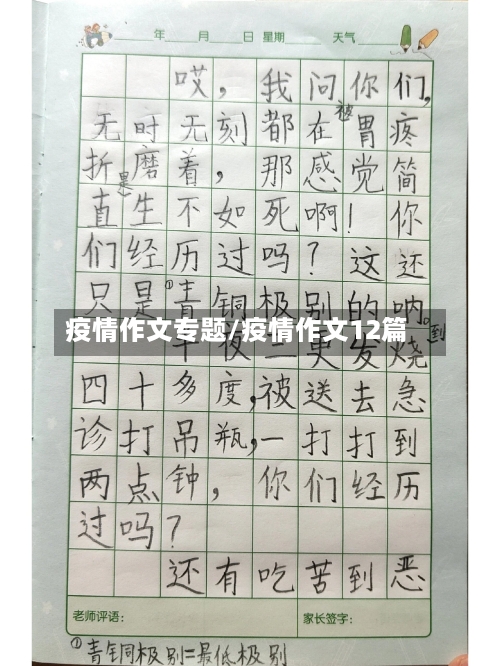 年 月 日 星期 天气
哎，我问你们，
无时无刻都在被胃疼
折磨着，那感觉简
直是生不如死啊！你
们经历过吗？这还
只是①青铜级别的呐。
疫情作文专题/疫情作文12篇
半夜二更发烧到
四十多度，被送去急
诊打吊瓶，一打打到
两点钟，你们经历
过吗？
还有吃苦到恶
老师评语：
家长签字：
①青铜极别=最低极别